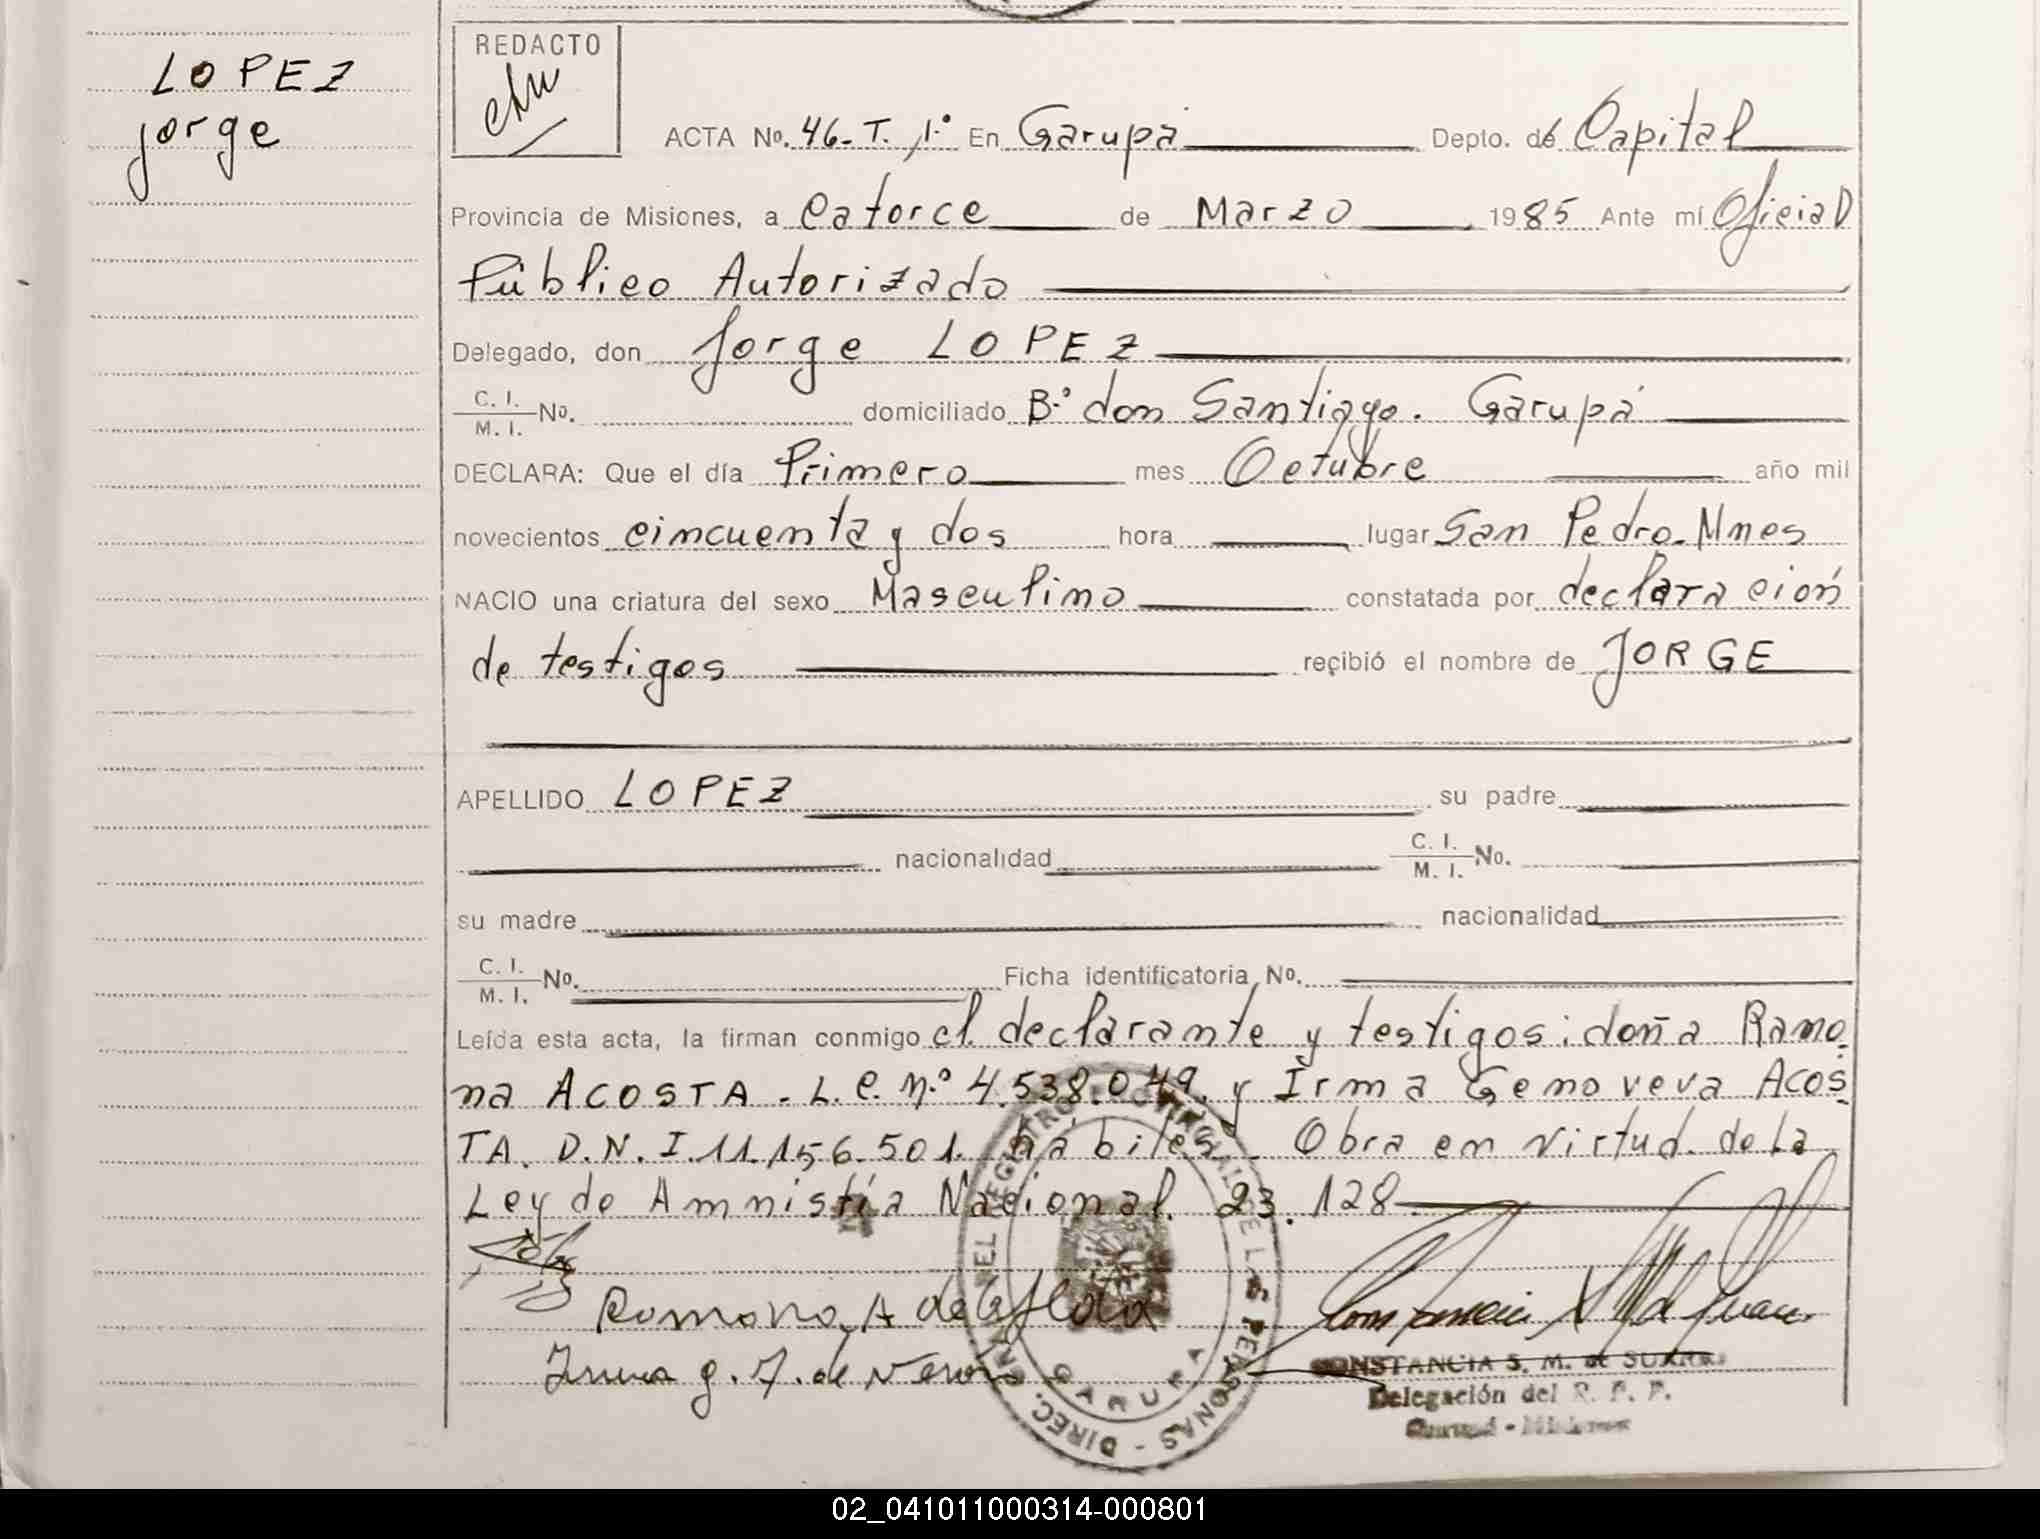 LOPEZ
Jorge
REDACTO
ACTA No. 46-T. 1º En Garupá Depto. de Capital
Provincia de Misiones, a Catorce de Marzo 1985 Ante mí Oficial
Público Autorizado
Delegado, don Jorge LOPEZ
C. I.
M. I. No. domiciliado Bº don Santiago. Garupá
DECLARA: Que el día Primero mes Octubre año mil
novecientos cincuenta y dos hora lugar San Pedro. Mnes
NACIO una criatura del sexo Masculino constatada por declaración
de testigos recibió el nombre de JORGE
APELLIDO LOPEZ su padre
nacionalidad C. I.
M. I. No.
su madre nacionalidad
C. I.
M. I. No. Ficha identificatoria No.
Leída esta acta, la firman conmigo el declarante y testigos: doña Ramo-
na ACOSTA. L.E. nº 4.538.049. y Irma Genoveva ACOS-
TA. D.N.I. 11.156.501. hábiles. Obra en virtud de la
Ley de Amnistía Nacional. 23.128
Ramona A de
Irma g. A. de
CONSTANCIA S. M. de SUAREZ
Delegación del R. P. P.
Garupá - Misiones
DIREC. GRAL. DEL REGISTRO PROVINCIAL DE LAS PERSONAS
GARUPA
02_041011000314-000801